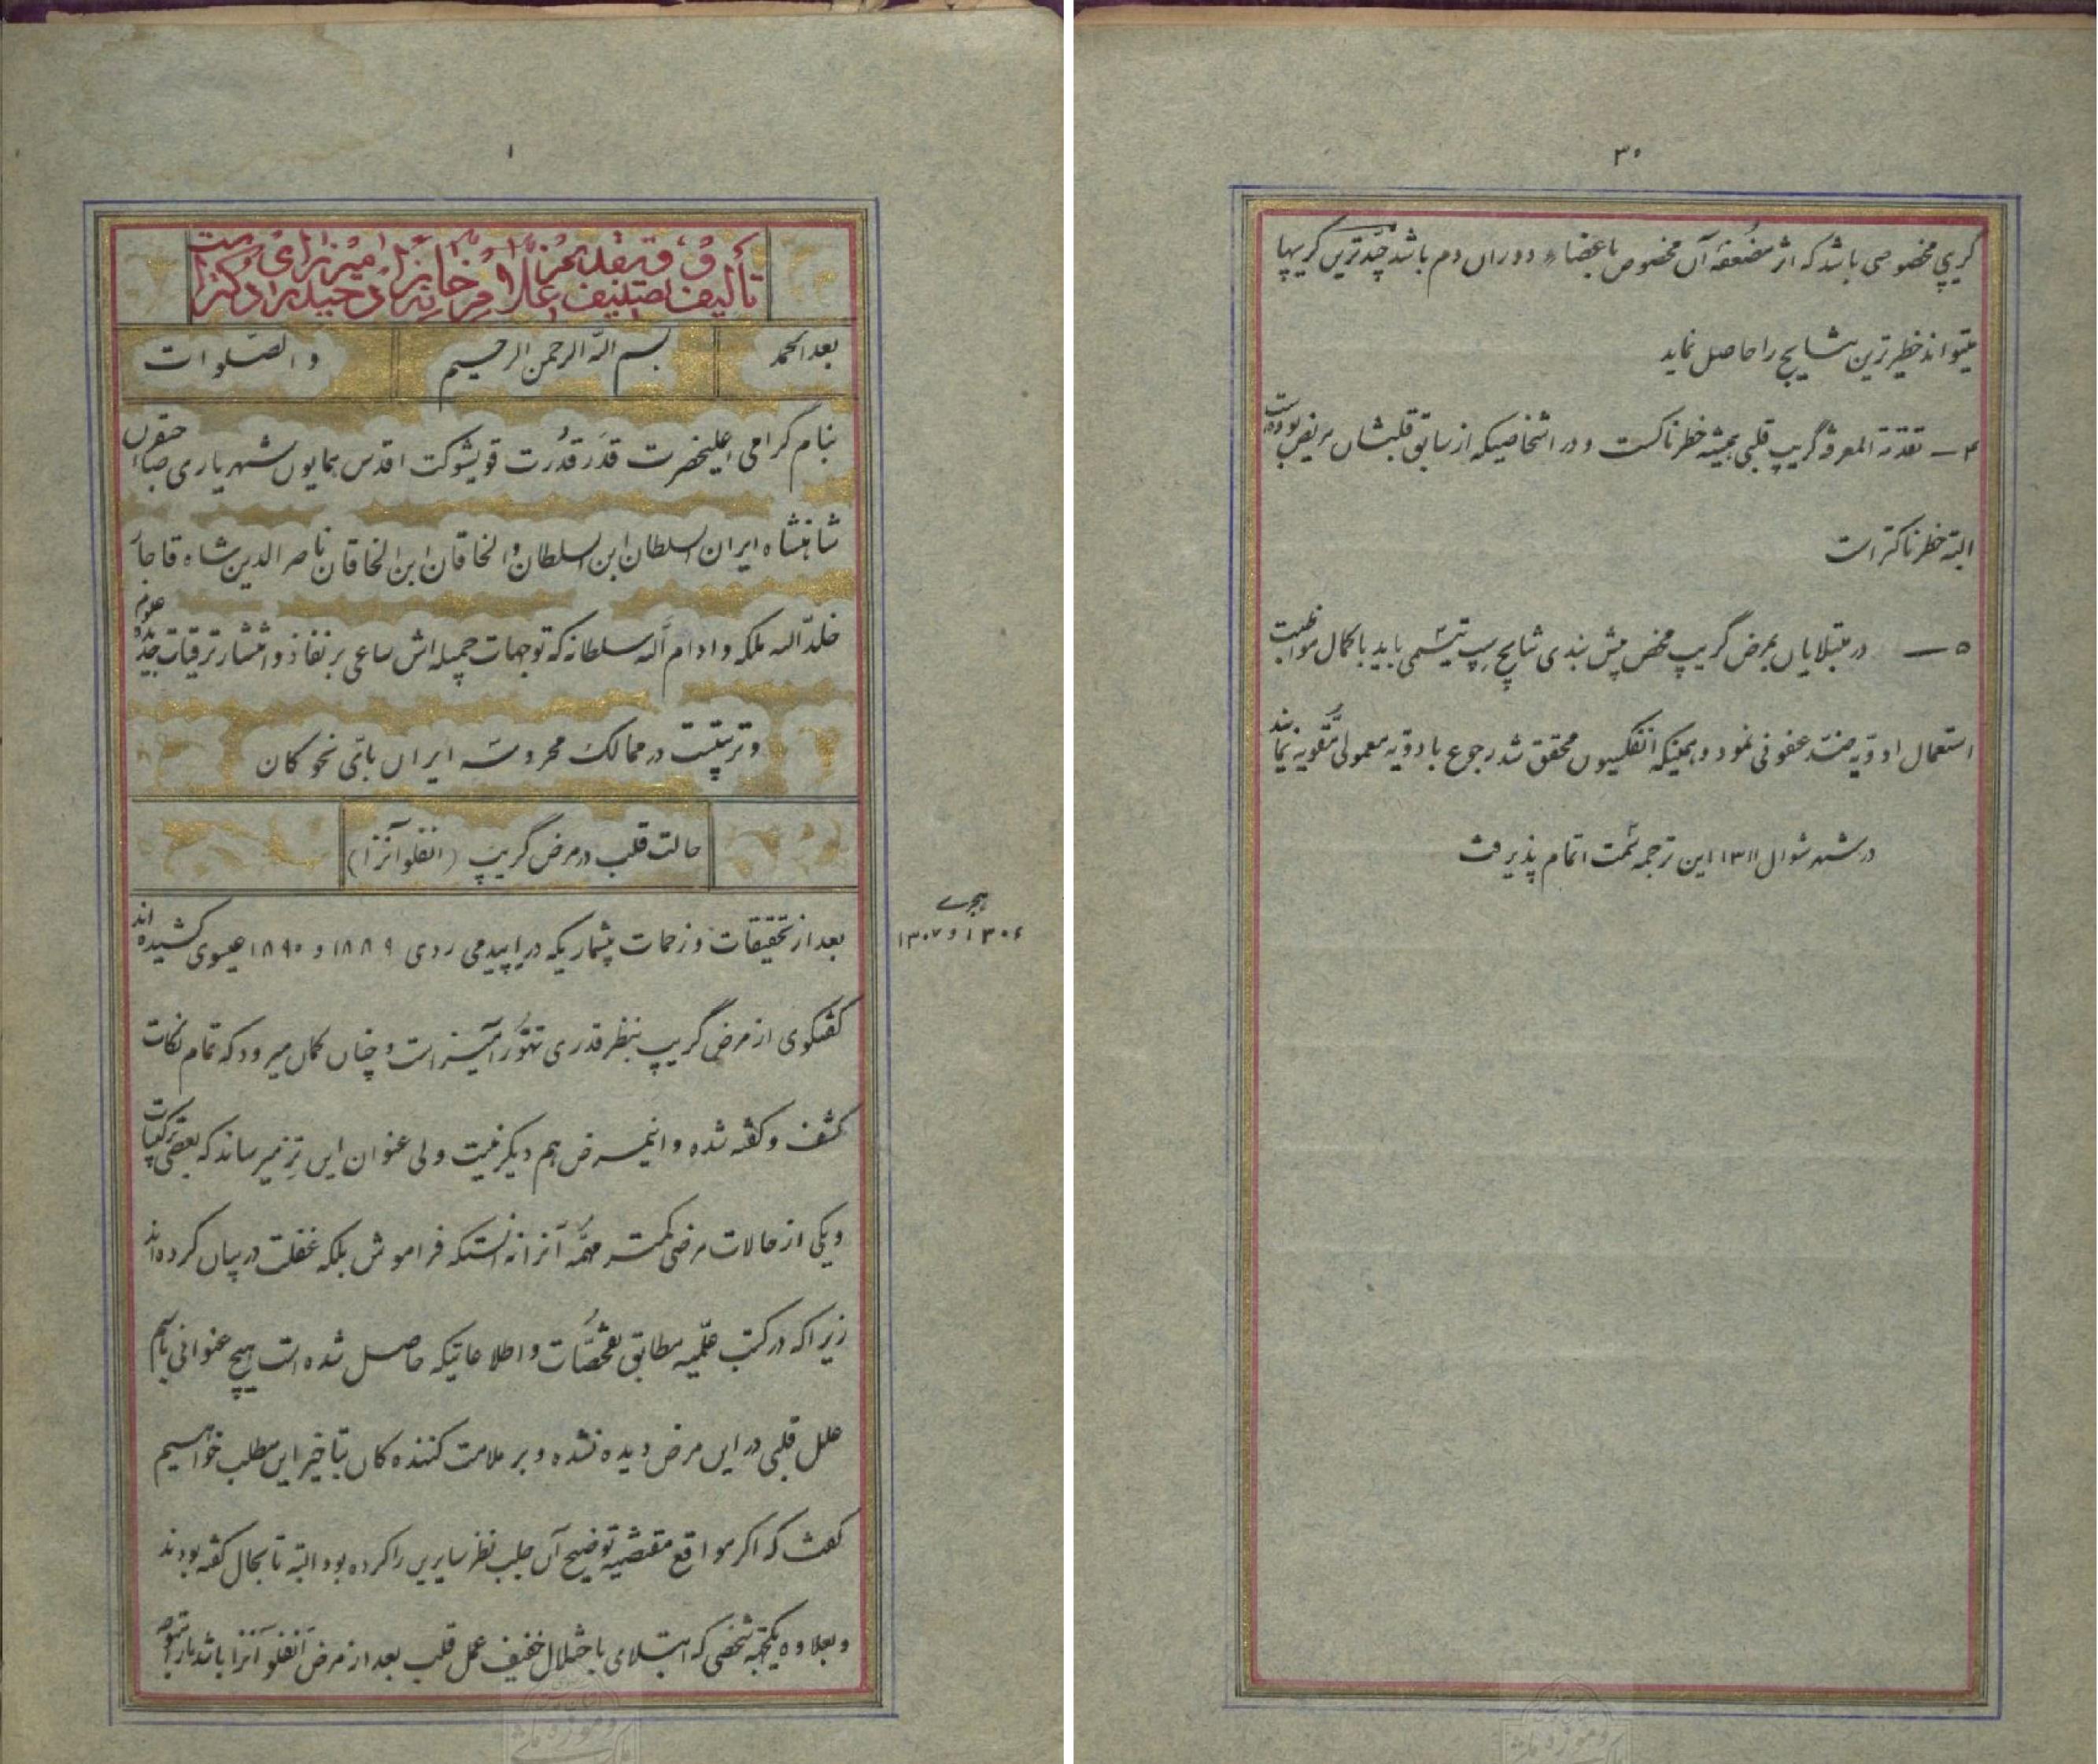 ۱
بعد الحمد
بسم الله الرحمن الرحیم
و الصلوات
بنام گرامی اعلیحضرت قدر قدرت قویشوکت اقدس همایون شهریاری صاحبقران
شاهنشاه ایران السلطان ابن السلطان و الخاقان ابن الخاقان ناصر الدین شاه قاجار
خلد الله ملکه و ادام الله سلطانه که توجهات جمیله اش ساعی بر نفاذ و انتشار ترقیات جدیده علوم
و تربیتست در ممالک محروسه ایران باتی نحو کان
حالت قلب در مرض گریپ (انفلوآنزا)
بعد از تحقیقات و زحمات بیشماریکه در اپیدمی ردی ۱۸۸۹ و ۱۸۹۰ عیسوی کشیده اند
هجری
۱۳۰۶ و ۱۳۰۷
گفتگوی از مرض گریپ بنظر قدری تهور آمیز است و چنان گمان میرود که تمام نکات
کشف و گفته شده و اینمرض هم دیگر نیست ولی عنوان این تز میرساند که بعضی ترکیبات
و یکی از حالات مرضی که مهمه آنرا ندانستکه فراموش بلکه غفلت در بیان کرده اند
زیرا که در کتب علمیه مطابق تفحصات و اطلاعاتیکه حاصل شده است هیچ عنوانی باسم
علل قلبی در این مرض دیده نشده و بر ملامت کننده کان بتاخیر این مطلب خواهیم
گفت که اگر مواقع مقتضیه توضیح آن جلب نظر سایرین را کرده بود البته تا بحال گفته بودند
و بعلاوه یکجهته شخصی که ابتلای باختلال خفیف عمل قلب بعد از مرض انفلوآنزا باشد
۳۰
گریپ مخصوصی باشد که اثر مضعفه آن مخصوص باعضاء دوران دم باشد گریپها
میتواند خطیرترین نتایج را حاصل نماید
۴ – تقدمة المعرفه گریپ قلبی همیشه خطرناکست و در اشخاصیکه از سابق قلبشان مریض بوده است
البته خطرناکتر است
۵ – در مبتلایان بمرض گریپ محض پیش بندی نتایج سپتیسمی باید با کمال مواظبت
استعمال ادویه ضد عفونی نمود و همینکه انفکسیون محقق شد رجوع بادویه معمولی مقویه نمایند
در شهر شوال ۱۳۱۱ این ترجمه سمت اتمام پذیرفت